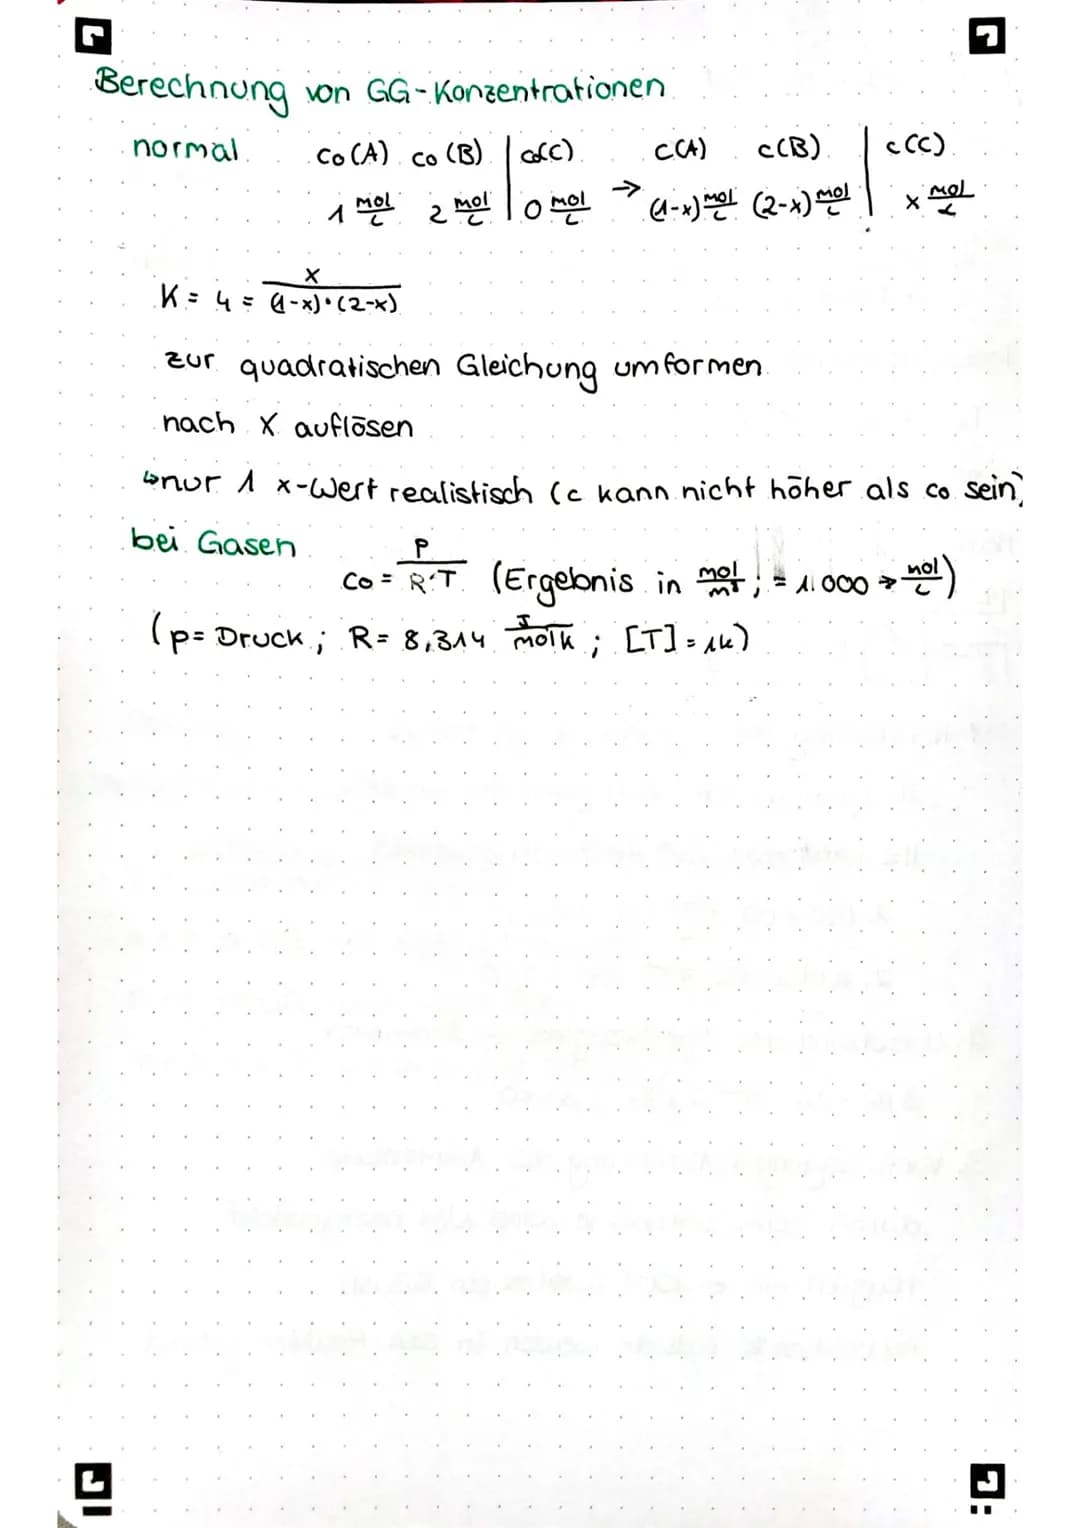 Berechnung von GG-Konzentrationen
normal c₀(A) c₀(B) | c₀(C) c(A) c(B) | c(C)
1 mol/L 2 mol/L | 0 mol/L → (1-x) mol/L (2-x) mol/L | x mol/L
K = 4 = x/((1-x)·(2-x))
zur quadratischen Gleichung umformen
nach x auflösen
↳ nur 1 x-Wert realistisch (c kann nicht höher als c₀ sein)
bei Gasen c₀ = P/(R·T) (Ergebnis in mol/m³ ; ÷ 1.000 → mol/L)
(p = Druck ; R = 8,314 J/molK ; [T] = 1K)